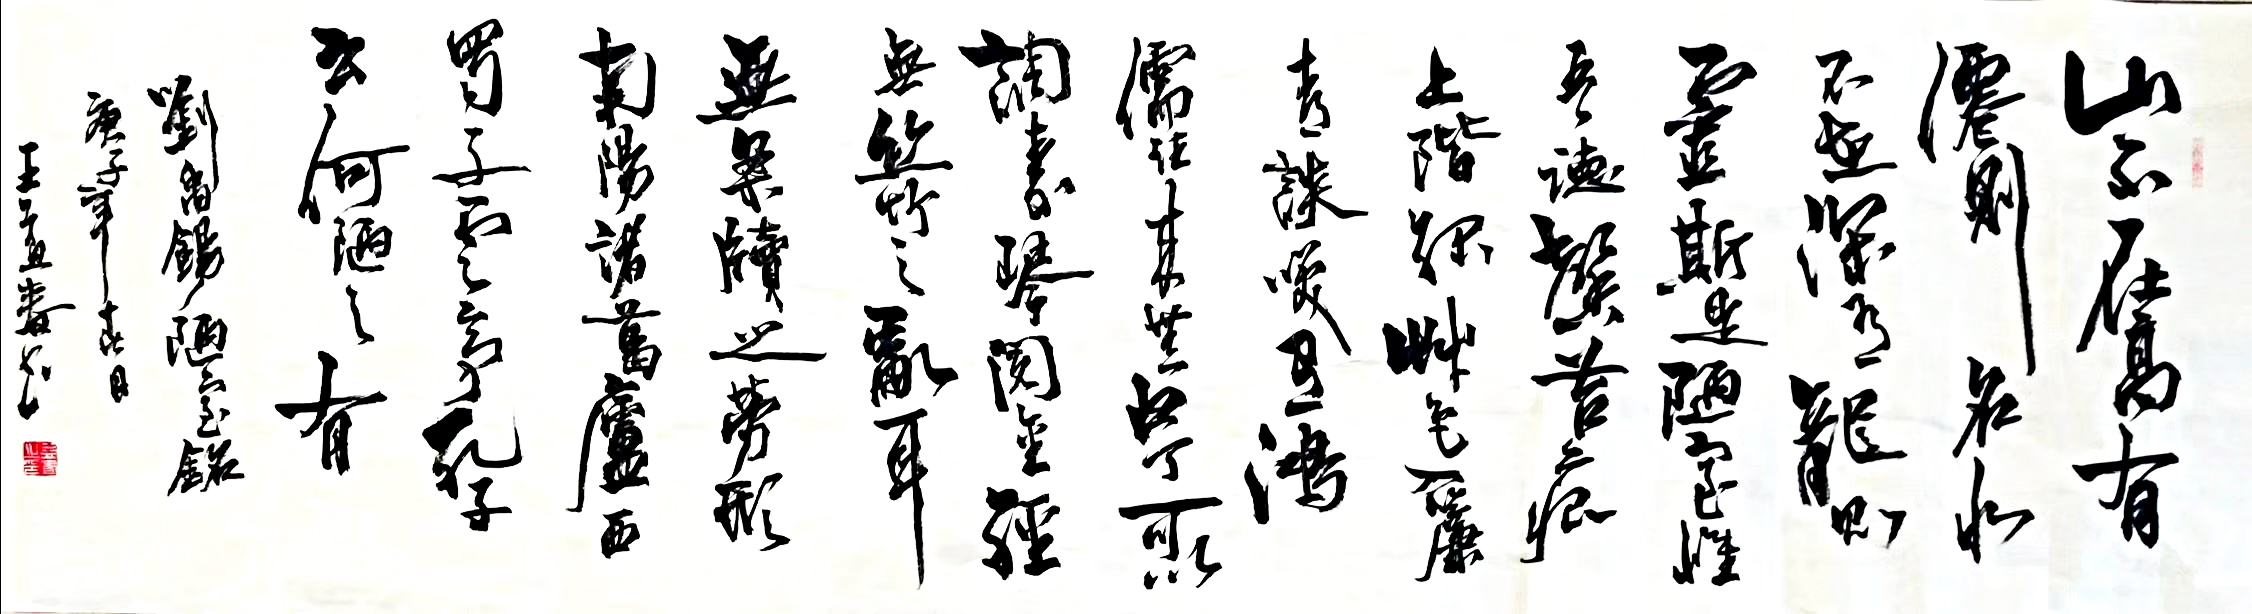 山不在高有
僊則名水
不在深有龍則
靈斯是陋室惟
吾德馨苔痕
上階綠艸色入簾
青談笑有鴻
儒往來無白丁可以
調素琴閱金經
無絲竹之亂耳
無案牘之勞形
南陽諸葛廬西
蜀子雲亭孔子
云何陋之有
劉禹錫陋室銘
庚子年春月
王